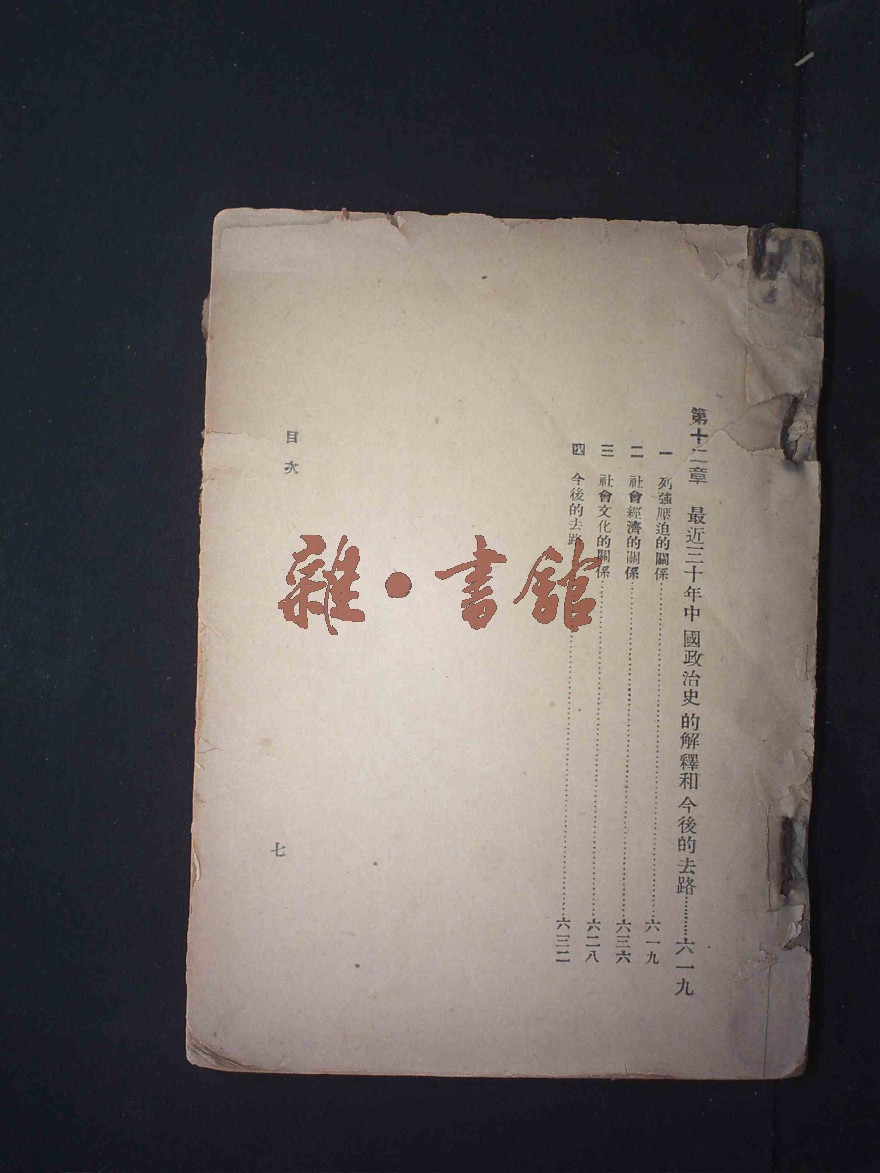 第十二章 最近三十年中國政治史的解釋和今後的去路………六一九
一 列強壓迫的關係………六一九
二 社會經濟的關係………六三六
三 社會文化的關係………六二八
四 今後的去路………六三二
目次
七
雜·書館